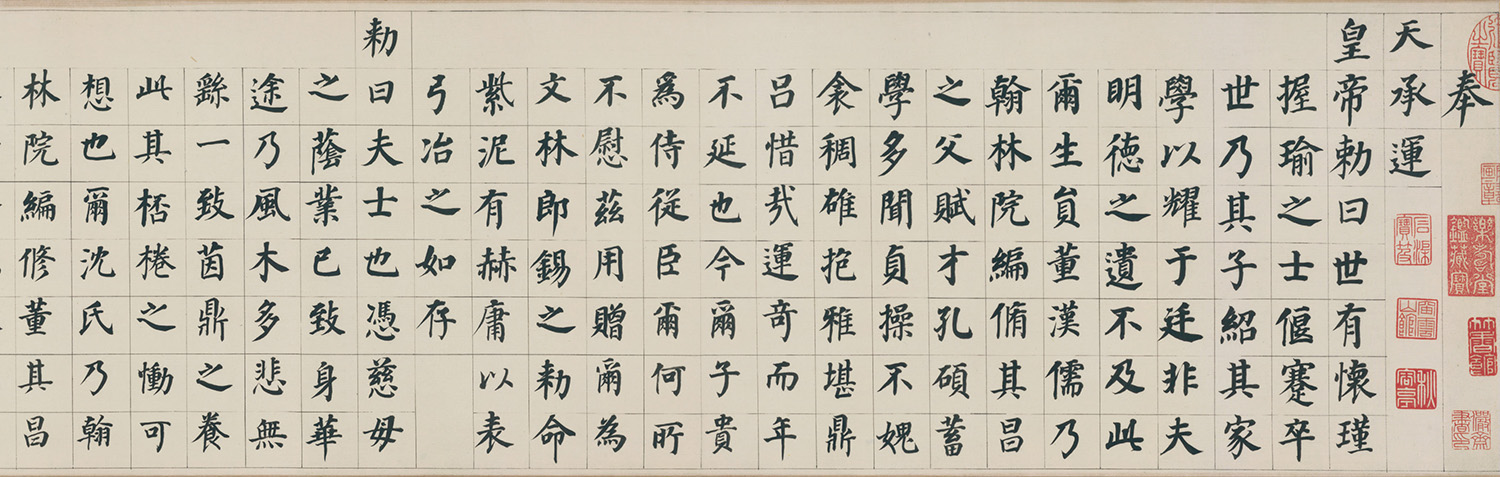 奉
天承運
皇帝勅曰世有懷瑾
握瑜之士偃蹇卒
世乃其子紹其家
學以耀于廷非夫
明德之遺不及此
爾生員董漢儒乃
翰林院編脩其昌
之父賦才孔碩蓄
學多聞貞操不媿
衾裯雄抱雅堪鼎
呂惜哉運奇而年
不延也今爾子貴
為侍從臣爾何所
不慰茲用贈爾為
文林郎錫之勅命
紫泥有赫庸以表
弓冶之如存
勅曰夫士也憑慈母
之蔭業已致身華
途乃風木多悲無
繇一致茵鼎之養
此其桮棬之慟可
想也爾沈氏乃翰
林院編修董其昌